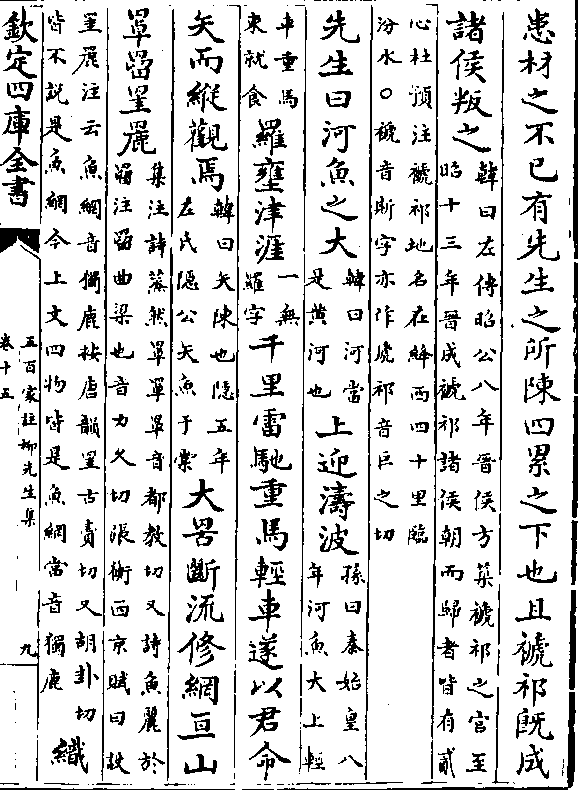 患材之不已有先生之所陳四累之下也且褫祁既成
諸侯叛之
韓曰左傳昭公八年晉侯方築褫祁之宫至
昭十三年晉成褫祁諸侯朝而歸者皆有貳
心杜預注褫祁地名在絳西四十里臨
汾水○褫音斯字亦作虒祁音巨之切
先生曰河魚之大
韓曰河當
是黄河也
上迎濤波
孫曰秦始皇八
年河魚大上輕
車重馬
東就食
羅壅津涯
一無
羅字
千里雷馳重馬輕車遂以君命
矢而縱觀焉
韓曰矢陳也隱五年
左氏隱公矢魚于棠
大罟斷流修網亘山
罩罶罣麗
集注詩蒸然罩罩罩音都教切又詩魚麗於
罶注罶曲梁也音力久切張衡西京賦曰設
罣麗注云魚網音獨鹿按唐韻罣古賣切又胡卦切
皆不説是魚網今上文四物皆是魚網當音獨鹿
織
欽定四庫全書
五百家註柳先生集
卷十五
九